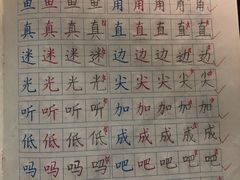 鱼 鱼 鱼 鱼 用 用 用 用
真 真 真 真 直 直 直 直
迷 迷 迷 迷 边 边 边 边
光 光 光 光 尖 尖 尖 尖
听 听 听 听 加 加 加 加
低 低 低 低 成 成 成 成
吗 吗 吗 吗 吧 吧 吧 吧